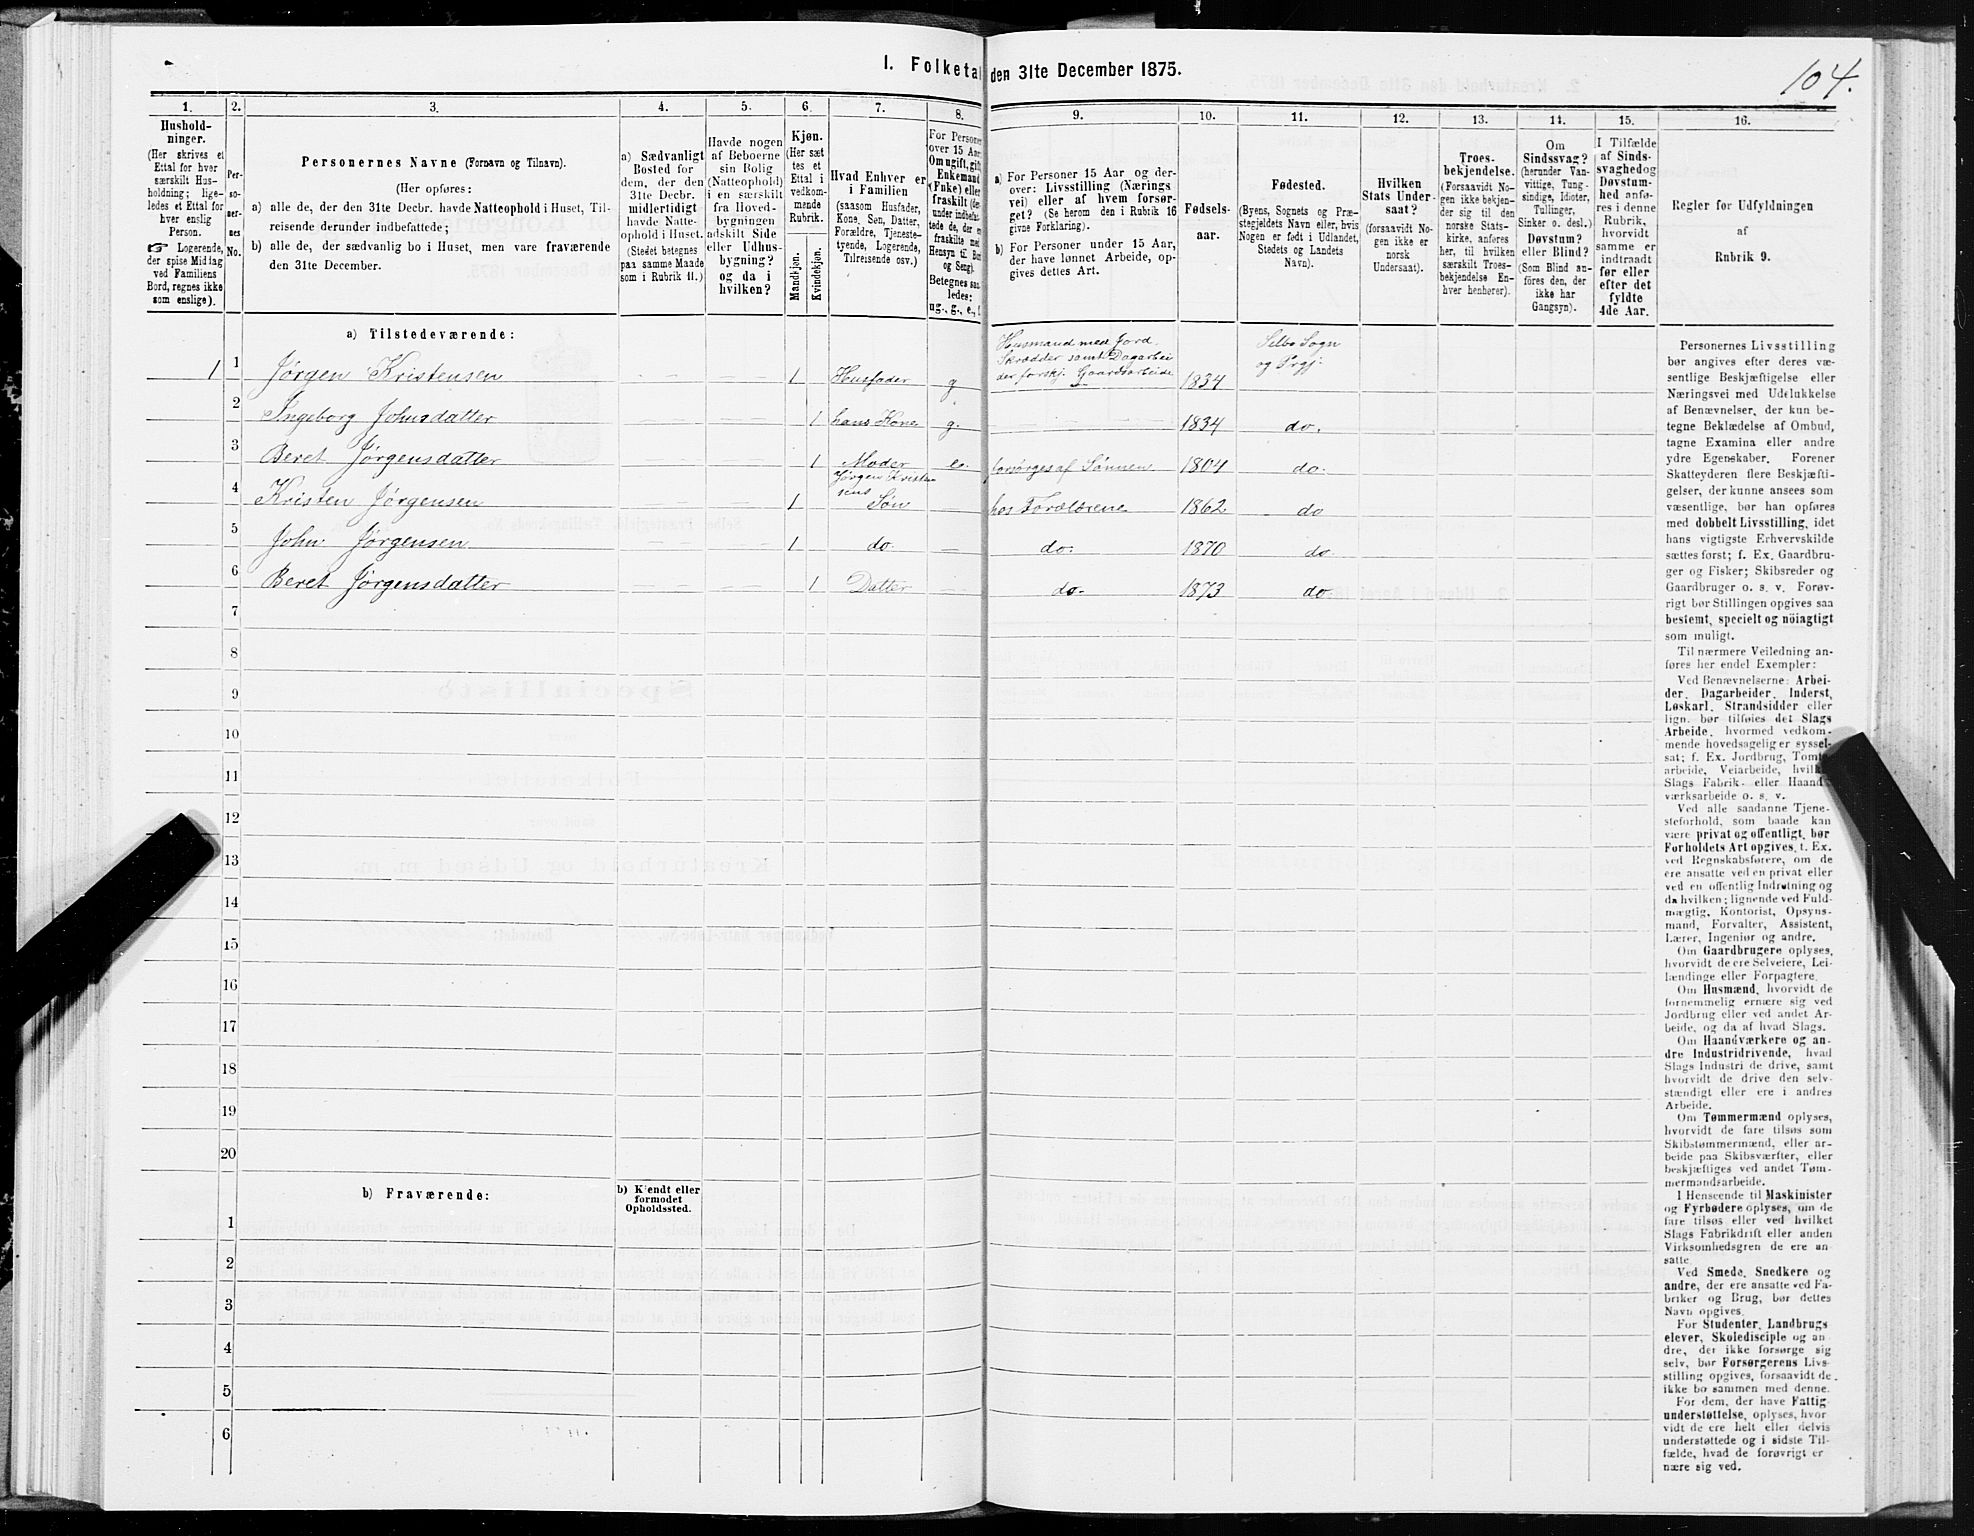 I. Folketal den 31te December 1875.
104.
1.
Hushold-
ninger.
(Her skrives et
Ettal for hver
særskilt Hus-
holdning; lige-
ledes et Ettal for
hver enslig
Person.
☞ Logerende,
der spise Middag
ved Familiens
Bord, regnes ikke
som enslige).
2.
Per-
so-
ner-
nes
No.
3.
Personernes Navne (Fornavn og Tilnavn).
(Her opføres:
a) alle de, der den 31te Decbr. havde Natteophold i Huset, Til-
reisende derunder indbefattede;
b) alle de, der sædvanlig bo i Huset, men vare fraværende
den 31te December.
4.
a) Sædvanligt
Bosted for
dem, der den
31te Decbr.
midlertidigt
havde Natte-
ophold i Huset.
(Stedet betegnes
paa samme Maade
som i Rubrik 11.)
5.
Havde nogen
af Beboerne
sin Bolig
(Natteophold)
i en særskilt
fra Hoved-
bygningen
adskilt Side
eller Udhus-
bygning?
og da i
hvilken?
6.
Kjøn.
(Her sæt
tes et
Ettal i
vedkom-
mende
Rubrik.
Mandkjøn.
Kvindekjøn.
7.
Hvad Enhver er
i Familien
(saasom Husfader,
Kone, Søn, Datter,
Forældre, Tjeneste-
tyende, Logerende,
Tilreisende osv.)
8.
For Personer
over 15 Aar:
Om ugift, gift,
Enkemand
(Enke) eller
fraskilt
Hensyn til Bord
og Seng).
ledes:
ug., g., e., f.
9.
a) For Personer 15 Aar og der-
over: Livsstilling (Nærings
vei) eller af hvem forsør-
get? (Se herom den i Rubrik 16
givne Forklaring).
b) For Personer under 15 Aar,
der have lønnet Arbeide, op-
gives dettes Art.
10.
Fødsels-
aar.
11.
Fødested.
(Byens, Sognets og Præ-
stegjeldets Navn eller, hvis
Nogen er født i Udlandet,
Stedets og Landets
Navn).
12.
Hvilken
Stats Under-
saat?
(forsaavidt No-
gen ikke er
norsk
Undersaat).
13.
Troes-
bekjendelse.
(Forsaavidt No-
gen ikke bekjen-
der sig til den
norske Stats-
kirke, anføres
her, til hvilken
særskilt Troes-
bekjendelse En-
hver henhører).
14.
Om
Sindssvag?
(herunder Van-
vittige, Tung-
sindige, Idioter,
Tullinger,
Sinker o. desl.)
Døvstum?
eller Blind?
(Som Blind an-
føres den, der
ikke har
Gangsyn).
15.
I Tilfælde
af Sinds-
svaghed og
Døvstum-
hed anfø-
res i denne
Rubrik,
hvorvidt
samme er
indtraadt
før eller
efter det
fyldte
4de Aar.
16.
Regler for Udfyldningen
af
Rubrik 9.
a) Tilstedeværende:
1 1 Jørgen Kristensen 1 Husfader g Husmand med Jord. Skrædder samt Dagarbei der forskj. Gaardsarbeide 1834 Selbo Sogn og Prgj.
2 Ingeborg Johnsdatter 1 hans Kone g. 1834 do.
3 Beret Jørgensdatter 1 Moder e. forsørges af Sønnen 1804 do.
4 Kristen Jørgensen 1 Jørgen Kristen sens Søn hos Forældrene 1862 do
5 John Jørgensen 1 do. do. 1870 do.
6 Beret Jørgensdatter 1 Datter do. 1873 do.
7
8
9
10
11
12
13
14
15
16
17
18
19
20
b) Fraværende:
b) Kjendt eller
formodet
Opholdssted.
1
2
3
4
5
6
Personernes Livsstilling
bør angives efter deres væ-
sentlige Beskjæftigelse eller
Næringsvei med Udelukkelse
af Benævnelser, der kun be-
tegne Beklædelse af Ombud,
tagne Examina eller andre
ydre Egenskaber. Forener
Skatteyderen flere Beskjæfti-
gelser, der kunne ansees som
væsentlige, bør han opføres
med dobbelt Livsstilling, idet
hans vigtigste Erhvervskilde
sættes først; f. Ex. Gaardbru-
ger og Fisker; Skibsreder og
Gaardbruger o. s. v. Forøv-
rigt bør Stillingen opgives saa
bestemt, specielt og nöiagtigt
som muligt.
Til nærmere Veiledning an-
føres her endel Exempler:
Ved Benævnelserne: Arbei-
der, Dagarbeider, Inderst,
Løskarl, Strandsidder eller
lign. bør tilføies det Slags
Arbeide, hvormed vedkom-
mende hovedsagelig er syssel-
sat; f. Ex. Jordbrug, Tomte-
arbeide, Veiarbeide, hvilket
Slags Fabrik- eller Haand-
værksarbeide o. s. v.
Ved alle saadanne Tjene-
steforhold, som baade kan
være privat og offentligt, bør
Forholdets Art opgives, f. Ex.
ved Regnskabsførere, om de
ere ansatte ved en privat eller
ved en offentlig Indretning og
da hvilken; lignende ved Fuld-
mægtig, Kontorist, Opsyns-
mand, Forvalter, Assistent,
Lærer, Ingeniør og andre.
Om Gaardbrugere oplyses,
hvorvidt de ere Selveiere, Lei-
lændinge eller Forpagtere.
Om Husmænd, hvorvidt de
fornemmelig ernære sig ved
Jordbrug eller ved andet Ar-
beide, og da af hvad Slags.
Om Haandværkere og an-
dre Industridrivende, hvad
Slags Industri de drive, samt
hvorvidt de drive den selv-
stændigt eller ere i andres
Arbeide.
Om Tømmermænd oplyses,
hvorvidt de fare tilsøs som
Skibstømmermænd, eller ar-
beide paa Skibsværfter, eller
beskjæftiges ved andet Tøm-
mermandsarbeide.
I Henseende til Maskinister
og Fyrbødere oplyses, om de
fare tilsøs eller ved hvilket
Slags Fabrikdrift eller anden
Virksomhedsgren de ere an-
satte.
Ved Smede, Snedkere og
andre, der ere ansatte ved Fa-
briker og Brug, bør dettes
Navn opgives.
For Studenter, Landbrugs
elever, Skoledisciple og an
dre, der ikke forsørge sig
selv, bør Forsørgerens Livs-
stilling opgives, forsaavidt de
ikke bo sammen med denne.
For dem, der have Fattig
understøttelse, oplyses, hvor
vidt de ere helt eller delvis
understøttede og i sidste Til-
fælde, hvad de forøvrigt er
nære sig ved.